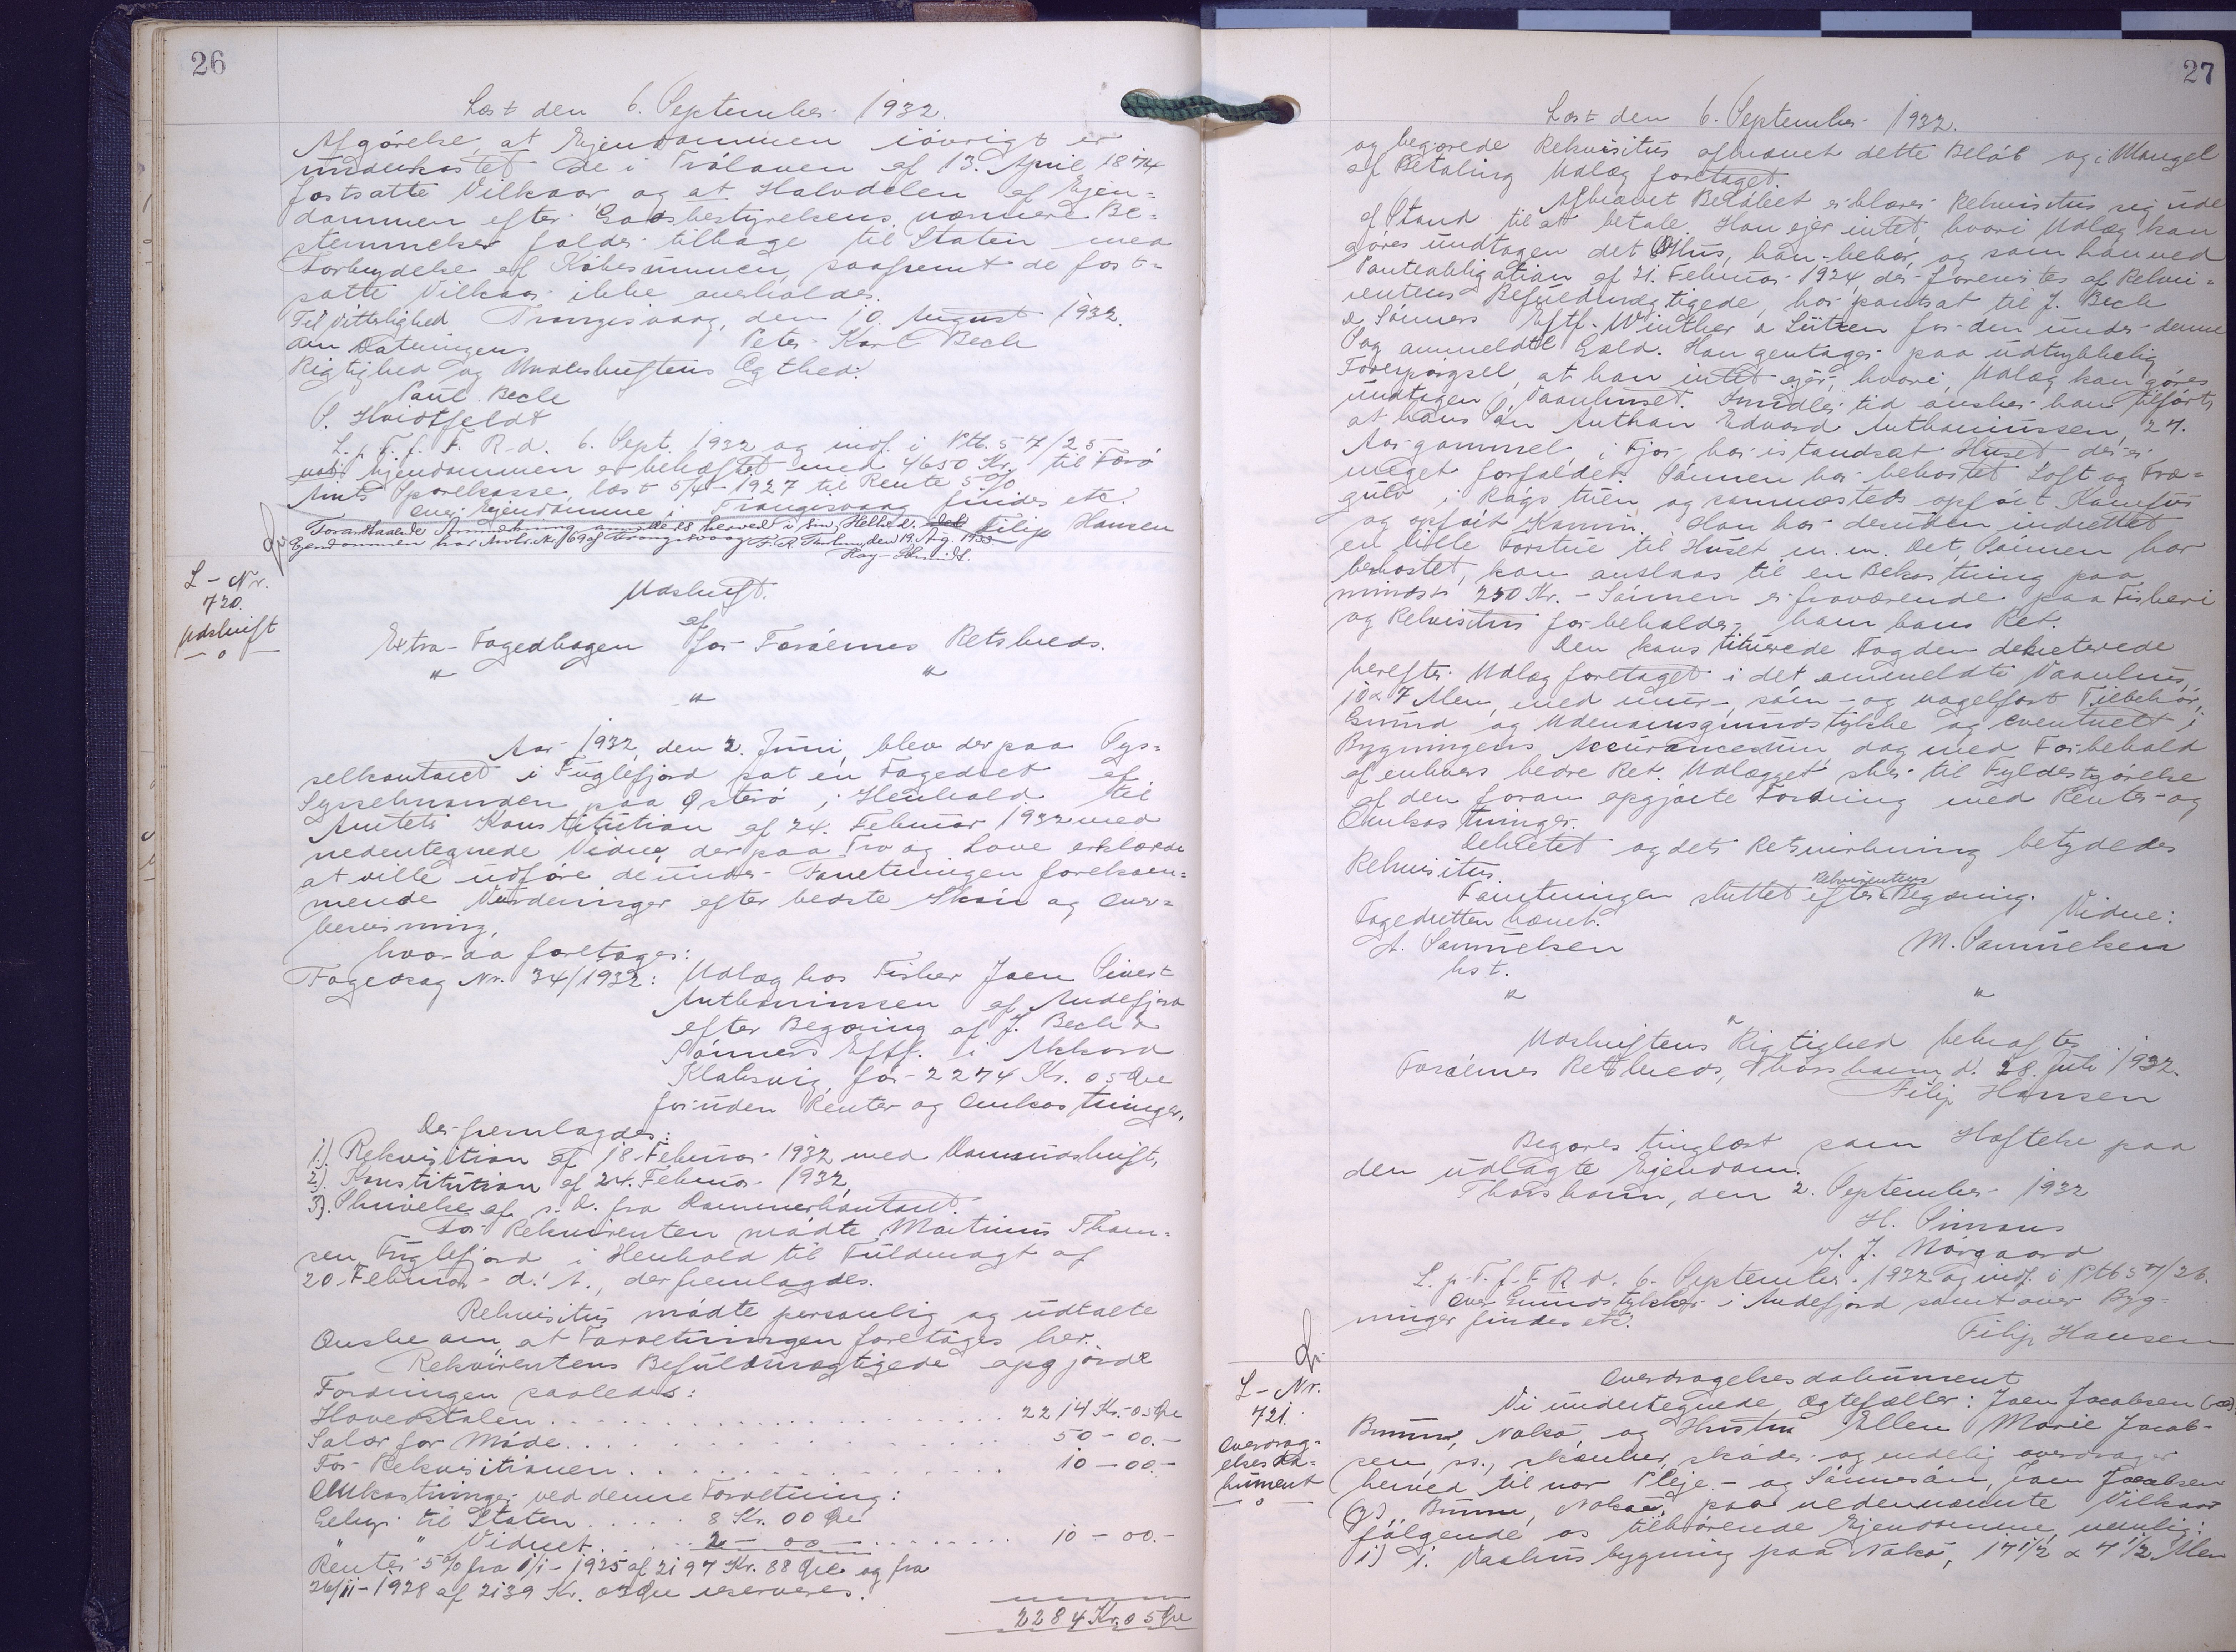 26
Læst den 6. September 1932.
Afgørelse, at Ejendommen iøvrigt er
underkastet de i Trålaven af 13. April 1874
fastsatte Vilkaar, og at Halvdelen af Ejen=
dommen efter Godsbestyrelsens nærmere Be=
stemmelser falder tilbage til Staten med
Fortrydelse af Købesummen, saafremt de fast=
satte Vilkaar ikke overholdes.
Til Vitterlighed Trangisvaag, den 10. August 1932.
om Dateringens Peter Karl Bech
Rigtighed og Underskriftens Ægthed:
Paul Bech
P. Hvidtfeldt
L. p. T. f. F. R-d. 6. Sept. 1932 og indf. i Ptb. 57/25
not: Ejendommen er behæftet med 4650 Kr. til Færø
Amts Sparekasse, læst 5/4-1927 til Rente 5%
over Ejendomme i Trangisvaag findes etc.
Filip Hansen
Foranstaaende Anmærkning annulleres herved i sin Helhed. Det
Ejendommen har Matr. Nr. 169 af Trangisvaag F. R. Thorshavn, den 19. Aug. 1935
Hay-Schmidt.
L-Nr.
720.
Udskrift
— o —
Udskrift
af
Extra-Fogedbogen for Færøernes Retskreds.
" "
"
Aar 1932, den 2. Juni, blev der paa Sys=
selkontoret i Fuglefjord sat en Fogedret af
Sysselmanden paa Østerø i Henhold til
Amtets Konstitution af 24. Februar 1932 med
nedentegnede Vidne, der paa Tro og Love erklærede
at ville udføre de under Forretningen forekom=
mende Vurderinger efter bedste Skøn og Over=
bevisning,
hvorda foretoges:
Fogedsag Nr. 34/1932: Udlæg hos Fisker Joen Sivert
Anthoniussen af Andefjord
efter Begæring af J. Bech &
Sønners Eftf. i Akkord
Klaksvig, for 2274 Kr. 05 Øre
foruden Renter og Omkostninger.
Der fremlagdes:
1). Rekvisition af 18. Februar 1932 med Dommsudskrift,
2). Konstitution af 24. Februar 1932,
3). Skrivelse af s. D. fra Dommerkontoret.
For Rekvirenten mødte Martinus Thom=
sen, Fuglefjord i Henhold til Fuldmagt af
20. Februar d. A., der fremlagdes.
Rekvisitus mødte personlig og udtalte
Ønske om, at Forretningen foretages her.
Rekvirentens Befuldmægtigede opgjorde
Fordringen saaledes:
Hovedstolen . . . . . . . . 2214 Kr.-05 Øre
Salær for Møde . . . . . . . . 50 - 00.-
For Rekvisitionen . . . . . . . . 10 - 00.-
Omkostninger ved denne Forretning:
Gebyr til Staten . . . . . 8 Kr. 00 Øre
" " Vidnet . . . . 2 - 00 . . . . . . . 10 - 00.-
Renter 5% fra 1/1-1925 af 2197 Kr. 88 Øre og fra
26/11-1928 af 2139 Kr. 03 Øre reserveres.
2284 Kr. 05 Øre
27
Læst den 6. September 1932.
og begærede Rekvisitus afkrævet dette Beløb og i Mangel
af Betaling Udlæg foretaget.
Afkrævet Beløbet erklærer Rekvisitus sig ude
af Stand til at betale. Han ejer intet, hvori Udlæg kan
gøres undtagen det Hus, han bebor, og som han ved
Panteobligation af 21. Februar 1924, der forevistes af Rekvi=
rentens Befuldmægtigede, har pantsat til J. Bech
& Sønners Eftf. Winther & Lützen for den under denne
Sag anmeldte Gæld. Han gentager paa udtrykkelig
Forespørgsel, at han intet ejer, hvori Udlæg kan gøres
undtagen Vaanhuset. Imidlertid ønsker han tilført,
at hans Søn Anthon Edvard Anthoniussen, 27.
Aar gammel, i Fjor har istandsat Huset der er
meget forfaldet. Sønnen har bekostet Loft og Træ=
gulv i Røgstuen og sammesteds opført Komfur
og opført Kamin. Han har desuden indrettet
en lille Forstue til Huset m. m. Det, Sønnen har
bekostet, kan anslaas til en Bekostning paa
mindst 250 Kr. - Sønnen er fraværende paa Fiskeri
og Rekvisitus forbeholder ham hans Ret.
Den konstituerede Fogden dekreterede
herefter Udlæg foretaget i det anmeldte Vaanhus,
10 x 7 Alen, med mur-, søm- og nagelfast Tilbehør,
Grund og Udenomsgrundstykke og eventuelt i
Bygningens Assurancesum, dog med Forbehold
af enhvers bedre Ret. Udlægget sker til Fyldestgørelse
af den foran opgjorte Fordring med Renter og
Omkostninger.
Dekretet og dets Retsvirkning betydedes
Rekvisitus.
Rekvirentens
Forretningen sluttet efter Begæring.
Fogedretten hævet. Vidne:
A. Samuelsen M. Samuelsen
kst.
" "
"
Udskriftens Rigtighed bekræftes
Færøernes Retskreds, Thorshavn, d. 28. Juli 1932.
Filip Hansen
Begæres tinglæst som Hæftelse paa
den udlagte Ejendom.
Thorshavn, den 2. September 1932
H. Simons
v/. J. Nørgaard
L. p. T. f. F. R-d. 6. September 1932 og indf. i Ptb 57/26.
Over Grundstykker i Andefjord samt over Byg=
ninger findes etc.
Filip Hansen
L-Nr.
721.
Overdrag=
elsesdo=
kument
— o —
Overdragelsesdokument
Vi undertegnede Ægtefæller: Joen Jacobsen
Brunn, Nolsø, og Hustru Ellen Marie Jacob-
sen, ss., skænker, skøder og endelig overdrager
herved til vor Pleje- og Sønnesøn, Joen Jacobsen
Brunn, Nolsø, paa nedennævnte Vilkaar
følgende os tilhørende Ejendomme, nemlig:
1) 1. Vaahusbygning paa Nolsø, 17 1/2 x 7 1/2 Alen